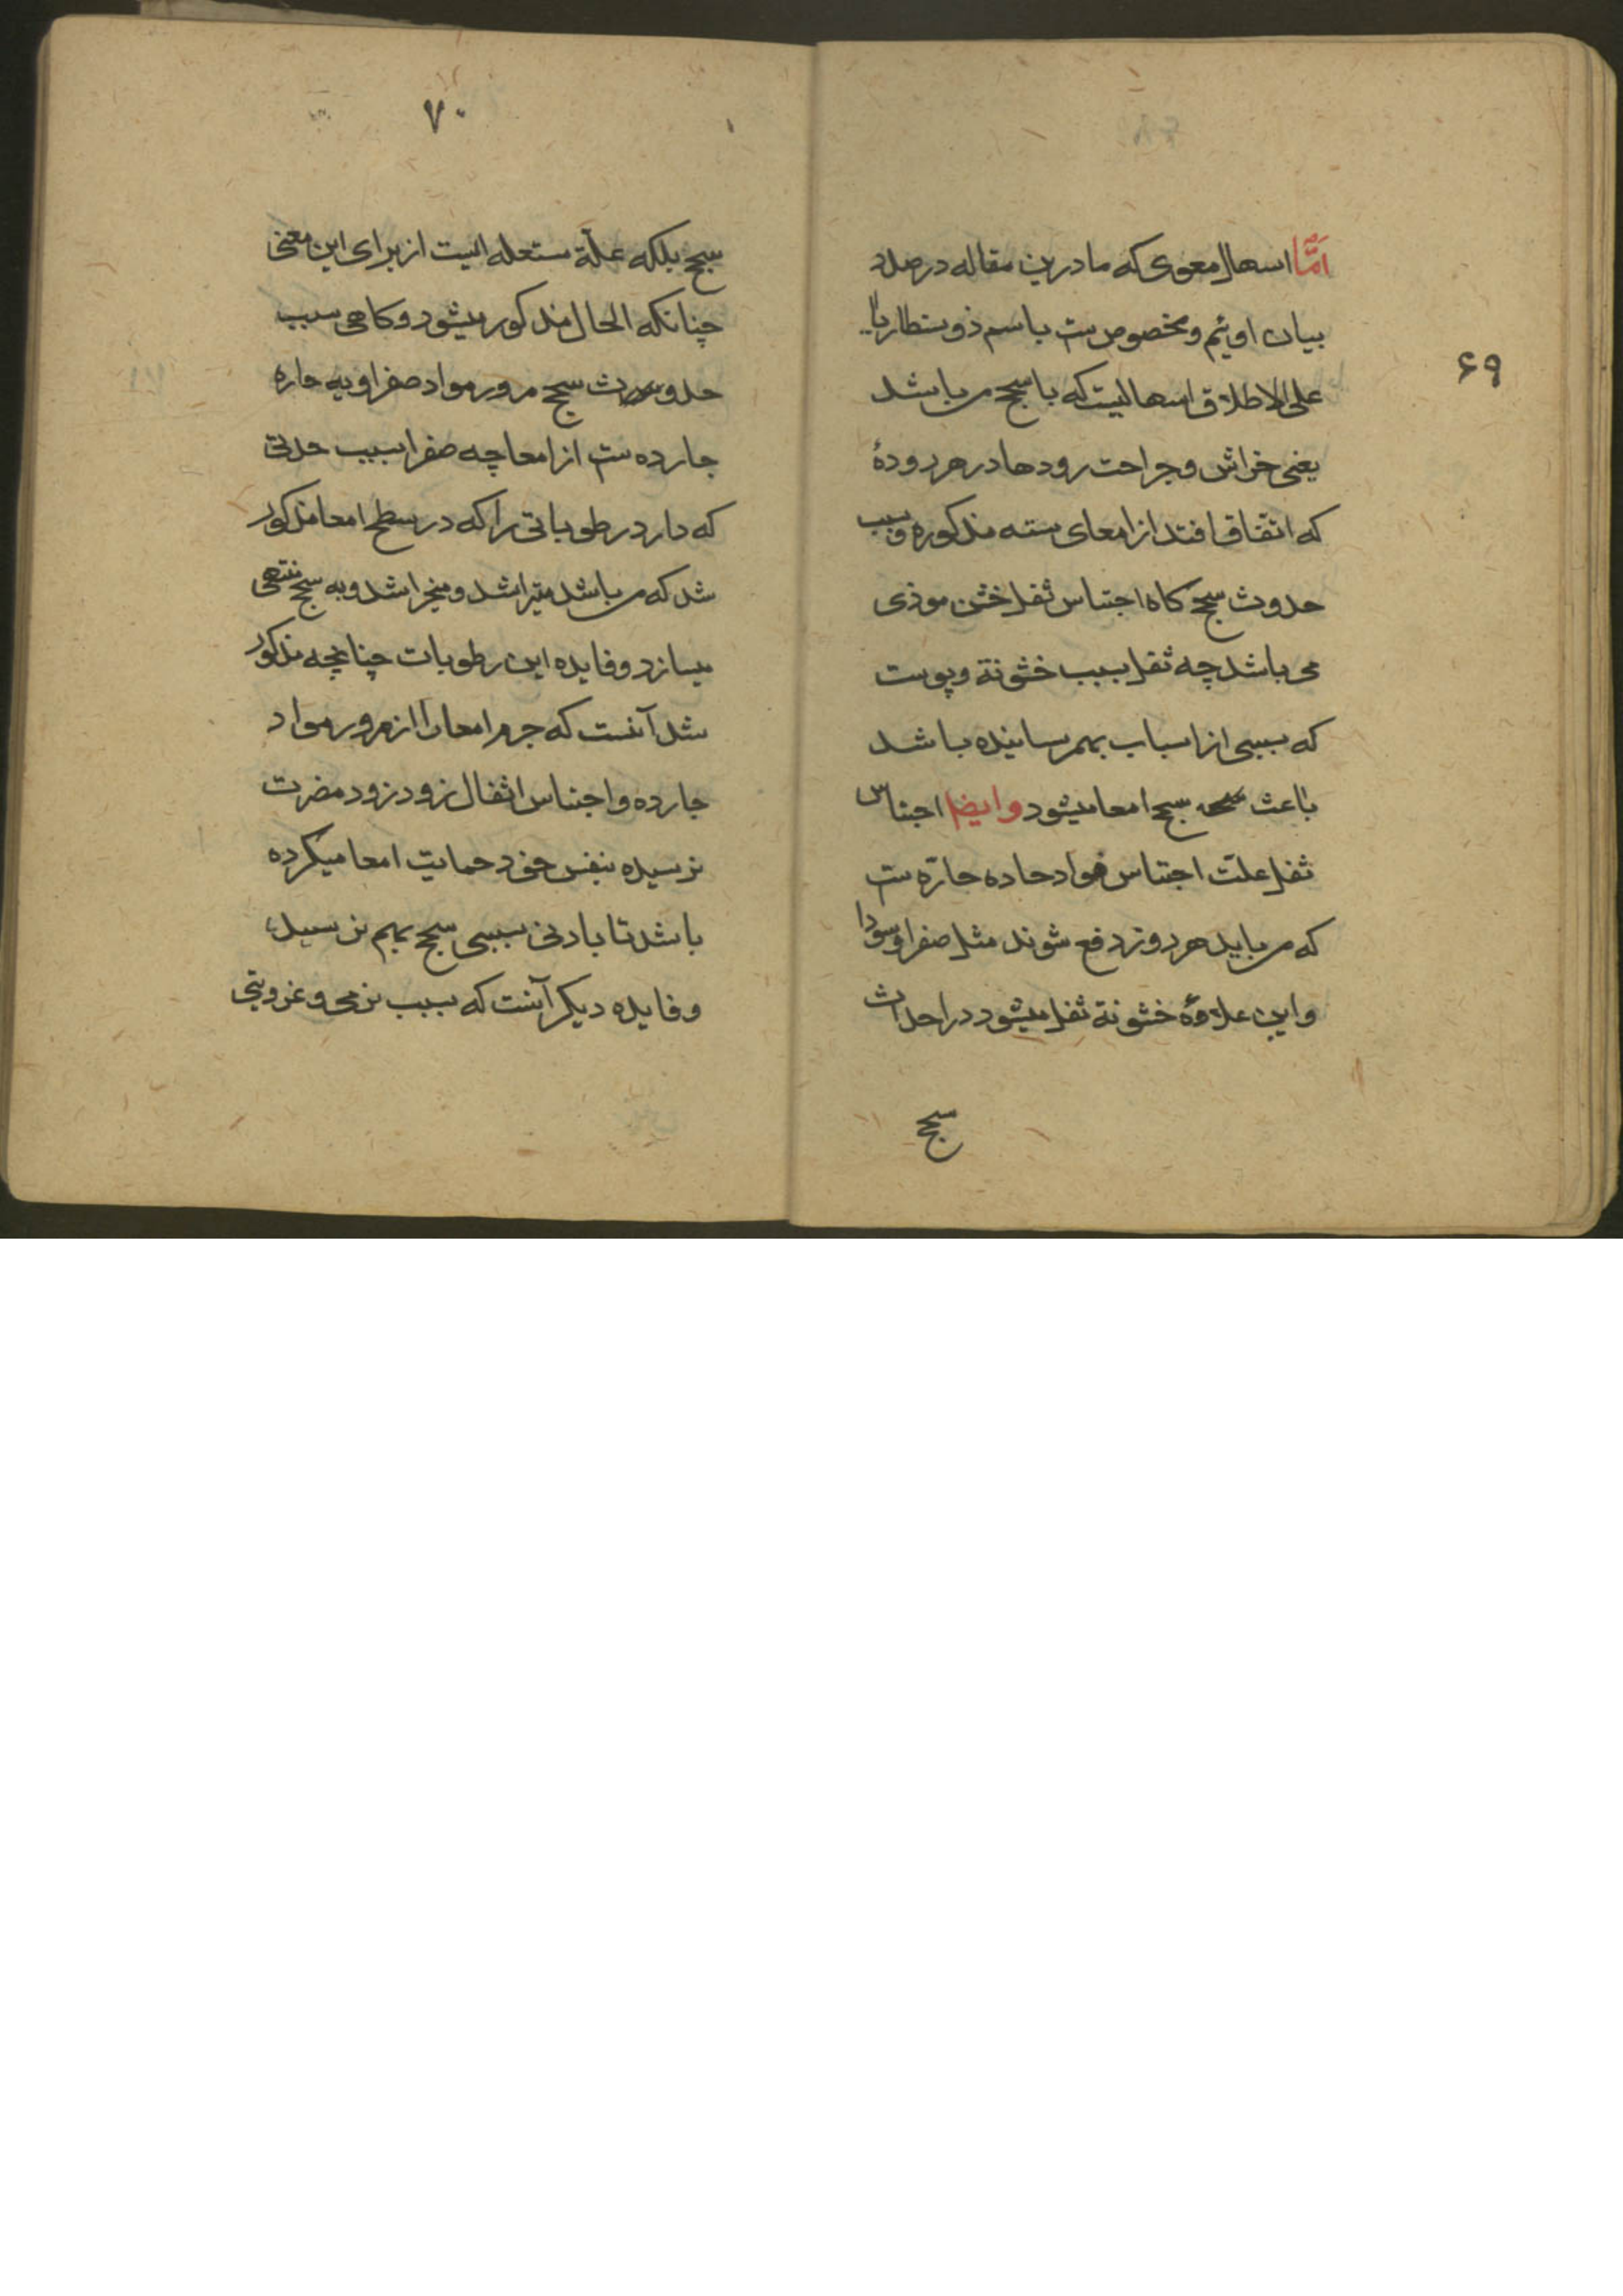 ۶۹
اَمّا اسهال معوی که ما درین مقاله درصدد
بیان اوئیم و مخصوص ست باسم ذوسنطاریا
علی الاطلاق اسهالیست که با سحج می باشد
یعنی خراش و جراحت رودها در هر رودۀ
که اتفاق افتد از امعای سته مذکوره و سبب
حدوث سحج کاه احتباس ثفل خشن موذی
می باشد چه ثفل بسبب خشونة و یبوست
که بسببی از اسباب بهم رسانیده باشد
باعث سحج امعا میشود وایضا احتباس
ثفل علت احتباس مواد حاده حارّه ست
که می باید هر روز دفع شوند مثل صفرا و سودا
و این علاوۀ خشونة ثفل میشود در احداث
سحج
۷۰
سحج بلکه علّة مستعله ایست از برای این معنی
چنانکه الحال مذکور میشود و کاهی سبب
حدوث سحج مرور مواد صفراویه حاره
جارده ست از امعا چه صفرا بسبب حدتی
که دارد رطوباتی را که در سطح امعا مذکور
شد که می باشد میتراشد و میخراشد و به سحج منتهی
میسازد و فایده این رطوبات چنانچه مذکور
شد آنست که جرم امعا را از مرور مواد
جارده و احتباس اثفال زود زود مضرت
نرسیده بنفس خود حمایت امعا میکرده
باشد تا بادنی سببی سحج بهم نرسد
و فایده دیکر آنست که بسبب نرمی و غرویتی